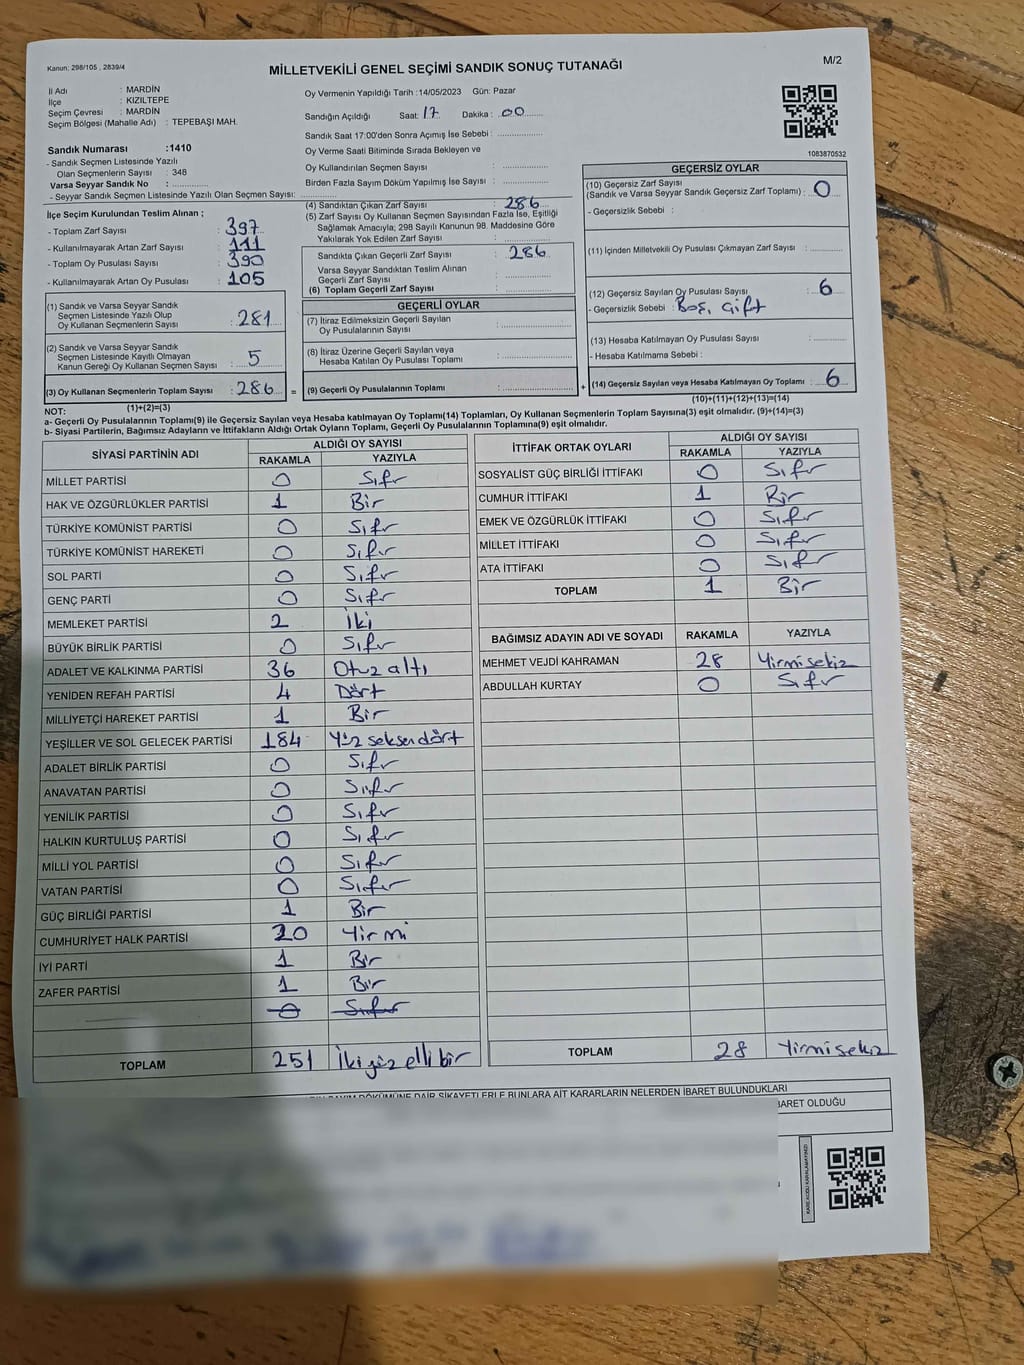 Kanun: 298/105 , 2839/4
MİLLETVEKİLİ GENEL SEÇİMİ SANDIK SONUÇ TUTANAĞI
M/2
İl Adı : MARDİN
İlçe : KIZILTEPE
Seçim Çevresi : MARDİN
Seçim Bölgesi (Mahalle Adı) : TEPEBAŞI MAH.
Oy Vermenin Yapıldığı Tarih :14/05/2023 Gün: Pazar
Sandığın Açıldığı Saat: 17 Dakika : 00
Sandık Saat 17:00'den Sonra Açımış İse Sebebi :
Oy Verme Saati Bitiminde Sırada Bekleyen ve
Oy Kullandırılan Seçmen Sayısı :
Birden Fazla Sayım Döküm Yapılmış İse Sayısı :
1083870532
Sandık Numarası :1410
- Sandık Seçmen Listesinde Yazılı
Olan Seçmenlerin Sayısı : 348
Varsa Seyyar Sandık No :
- Seyyar Sandık Seçmen Listesinde Yazılı Olan Seçmen Sayısı:
İlçe Seçim Kurulundan Teslim Alınan ;
- Toplam Zarf Sayısı : 397
- Kullanılmayarak Artan Zarf Sayısı : 111
- Toplam Oy Pusulası Sayısı : 390
- Kullanılmayarak Artan Oy Pusulası : 105
(1) Sandık ve Varsa Seyyar Sandık
Seçmen Listesinde Yazılı Olup
Oy Kullanan Seçmenlerin Sayısı : 281
(2) Sandık ve Varsa Seyyar Sandık
Seçmen Listesinde Kayıtlı Olmayan
Kanun Gereği Oy Kullanan Seçmen Sayısı : 5
(3) Oy Kullanan Seçmenlerin Toplam Sayısı : 286 =
(1)+(2)=(3)
(4) Sandıktan Çıkan Zarf Sayısı : 286
(5) Zarf Sayısı Oy Kullanan Seçmen Sayısından Fazla İse, Eşitliği
Sağlamak Amacıyla; 298 Sayılı Kanunun 98. Maddesine Göre
Yakılarak Yok Edilen Zarf Sayısı :
Sandıkta Çıkan Geçerli Zarf Sayısı : 286
Varsa Seyyar Sandıktan Teslim Alınan
Geçerli Zarf Sayısı :
(6) Toplam Geçerli Zarf Sayısı :
GEÇERLİ OYLAR
(7) İtiraz Edilmeksizin Geçerli Sayılan
Oy Pusulalarının Sayısı :
(8) İtiraz Üzerine Geçerli Sayılan veya
Hesaba Katılan Oy Pusulası Toplamı :
(9) Geçerli Oy Pusulalarının Toplamı : +
GEÇERSİZ OYLAR
(10) Geçersiz Zarf Sayısı
(Sandık ve Varsa Seyyar Sandık Geçersiz Zarf Toplamı) : 0
- Geçersizlik Sebebi :
(11) İçinden Milletvekili Oy Pusulası Çıkmayan Zarf Sayısı :
(12) Geçersiz Sayılan Oy Pusulası Sayısı : 6
- Geçersizlik Sebebi : Boş, Çift
(13) Hesaba Katılmayan Oy Pusulası Sayısı :
- Hesaba Katılmama Sebebi :
(14) Geçersiz Sayılan veya Hesaba Katılmayan Oy Toplamı : 6
(10)+(11)+(12)+(13)=(14)
NOT:
a- Geçerli Oy Pusulalarının Toplamı(9) ile Geçersiz Sayılan veya Hesaba katılmayan Oy Toplamı(14) Toplamları, Oy Kullanan Seçmenlerin Toplam Sayısına(3) eşit olmalıdır. (9)+(14)=(3)
b- Siyasi Partilerin, Bağımsız Adayların ve İttifakların Aldığı Ortak Oyların Toplamı, Geçerli Oy Pusulalarının Toplamına(9) eşit olmalıdır.
SİYASİ PARTİNİN ADI ALDIĞI OY SAYISI
RAKAMLA YAZIYLA
MİLLET PARTİSİ 0 Sıfır
HAK VE ÖZGÜRLÜKLER PARTİSİ 1 Bir
TÜRKİYE KOMÜNİST PARTİSİ 0 Sıfır
TÜRKİYE KOMÜNİST HAREKETİ 0 Sıfır
SOL PARTİ 0 Sıfır
GENÇ PARTİ 0 Sıfır
MEMLEKET PARTİSİ 2 İki
BÜYÜK BİRLİK PARTİSİ 0 Sıfır
ADALET VE KALKINMA PARTİSİ 36 Otuz altı
YENİDEN REFAH PARTİSİ 4 Dört
MİLLİYETÇİ HAREKET PARTİSİ 1 Bir
YEŞİLLER VE SOL GELECEK PARTİSİ 184 Yüz seksendört
ADALET BİRLİK PARTİSİ 0 Sıfır
ANAVATAN PARTİSİ 0 Sıfır
YENİLİK PARTİSİ 0 Sıfır
HALKIN KURTULUŞ PARTİSİ 0 Sıfır
MİLLİ YOL PARTİSİ 0 Sıfır
VATAN PARTİSİ 0 Sıfır
GÜÇ BİRLİĞİ PARTİSİ 1 Bir
CUMHURİYET HALK PARTİSİ 20 Yirmi
İYİ PARTİ 1 Bir
ZAFER PARTİSİ 1 Bir
0 Sıfır
TOPLAM 251 İkiyüz elli bir
İTTİFAK ORTAK OYLARI ALDIĞI OY SAYISI
RAKAMLA YAZIYLA
SOSYALİST GÜÇ BİRLİĞİ İTTİFAKI 0 Sıfır
CUMHUR İTTİFAKI 1 Bir
EMEK VE ÖZGÜRLÜK İTTİFAKI 0 Sıfır
MİLLET İTTİFAKI 0 Sıfır
ATA İTTİFAKI 0 Sıfır
TOPLAM 1 Bir
BAĞIMSIZ ADAYIN ADI VE SOYADI RAKAMLA YAZIYLA
MEHMET VEJDİ KAHRAMAN 28 Yirmisekiz
ABDULLAH KURTAY 0 Sıfır
TOPLAM 28 Yirmisekiz
DÖKÜMÜNE DAİR ŞİKAYETLERLE BUNLARA AİT KARARLARIN NELERDEN İBARET BULUNDUKLARI
BARET OLDUĞU